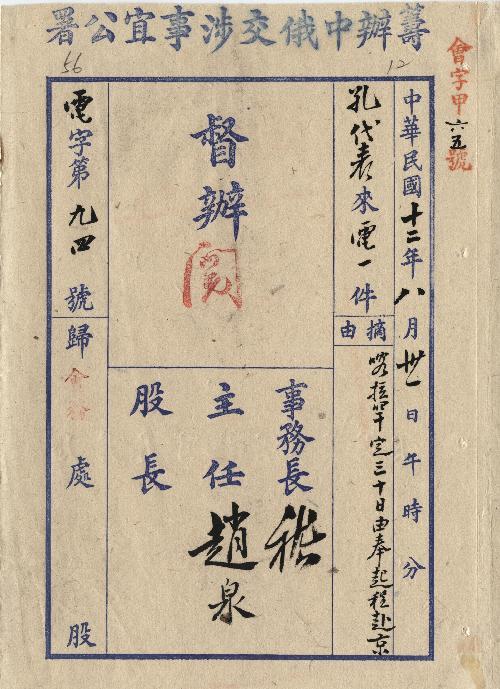 籌辦中俄交涉事宜公署
12
56
會字甲六五號
中華民國十二年八月卅一日午時分
孔代表來電一件
摘由
喀拉罕定三十日由奉起程赴京
督辦
閱
事務長 嵇
主任 趙泉
股長
電字第九四號歸會務處股